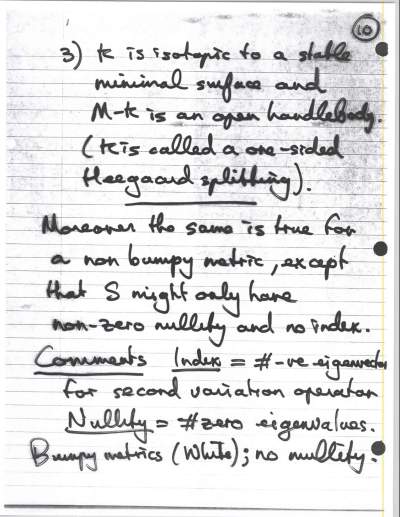 10
3) K is isotopic to a stable
minimal surface and
M-K is an open handlebody.
(K is called a one-sided
Heegaard splitting).
Moreover the same is true for
a non bumpy metric, except
that S might only have
non-zero nullity and no index.
Comments Index = #-ve eigenvector
for second variation operator
Nullity = #zero eigenvalues.
Bumpy metrics (White); no nullity.